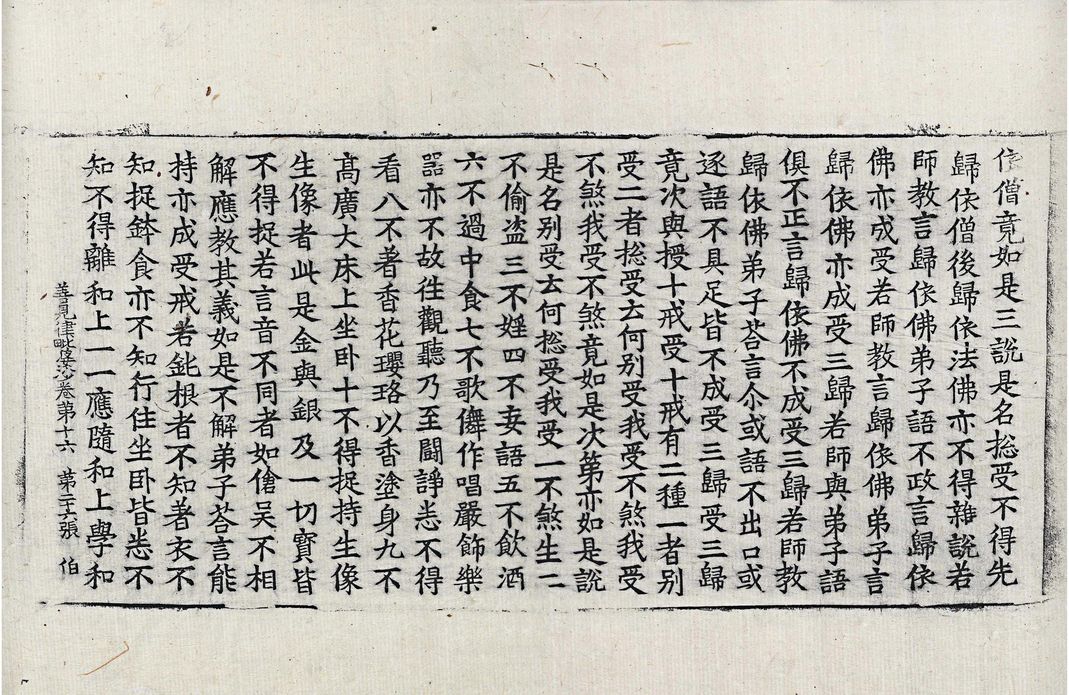 依僧竟如是三說是名揔受不得先
歸依僧後歸依法佛亦不得雜說若
師教言歸依佛弟子語不政言歸依
佛亦成受若師教言歸依佛弟子言
歸依佛亦成受三歸若師與弟子語
俱不正言歸依佛不成受三歸若師教
歸依佛弟子荅言尒或語不出口或
逐語不具足皆不成受三歸受三歸
竟次與授十戒受十戒有二種一者別
受二者揔受云何別受我受不煞我受
不煞我受不煞竟如是次第亦如是說
是名別受云何揔受我受一不煞生二
不偷盗三不婬四不妄語五不飲酒
六不過中食七不歌儛作唱嚴飾樂
器亦不故徃觀聽乃至闘諍悉不得
看八不著香花瓔珞以香塗身九不
髙廣大床上坐卧十不得捉持生像
生像者此是金與銀及一切寳皆
不得捉若言音不同者如傖吴不相
解應教其義如是不解弟子荅言能
持亦成受戒若鈍根者不知著衣不
知捉鉢食亦不知行住坐卧皆悉不
知不得離和上一一應隨和上學和
善見律毗婆沙卷第十六 第二十六張 伯